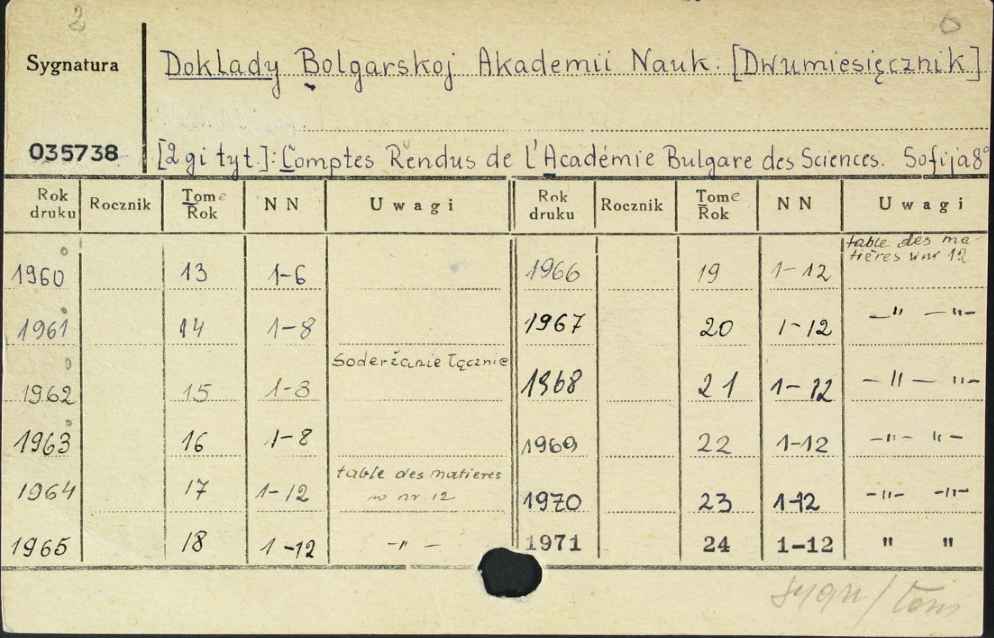 2
Sygnatura
Doklady Bolgarskoj Akademii Nauk. [Dwumiesięcznik]
035738
[2gi tyt.]: Comptes Rendus de L'Académie Bulgare des Sciences. Sofija 8°
Rok druku Rocznik Tome Rok NN Uwagi Rok druku Rocznik Tome Rok NN Uwagi
1960 13 1-6 1966 19 1-12 table des matières w nr 12
1961 14 1-8 1967 20 1-12 -"- -"-
1962 15 1-8 Soderžanie łącznie 1968 21 1-12 -"- "-
1963 16 1-8 1969 22 1-12 -"- "-
1964 17 1-12 table des matieres w nr 12 1970 23 1-12 -"- -"-
1965 18 1-12 -"- 1971 24 1-12 " "
sygn/